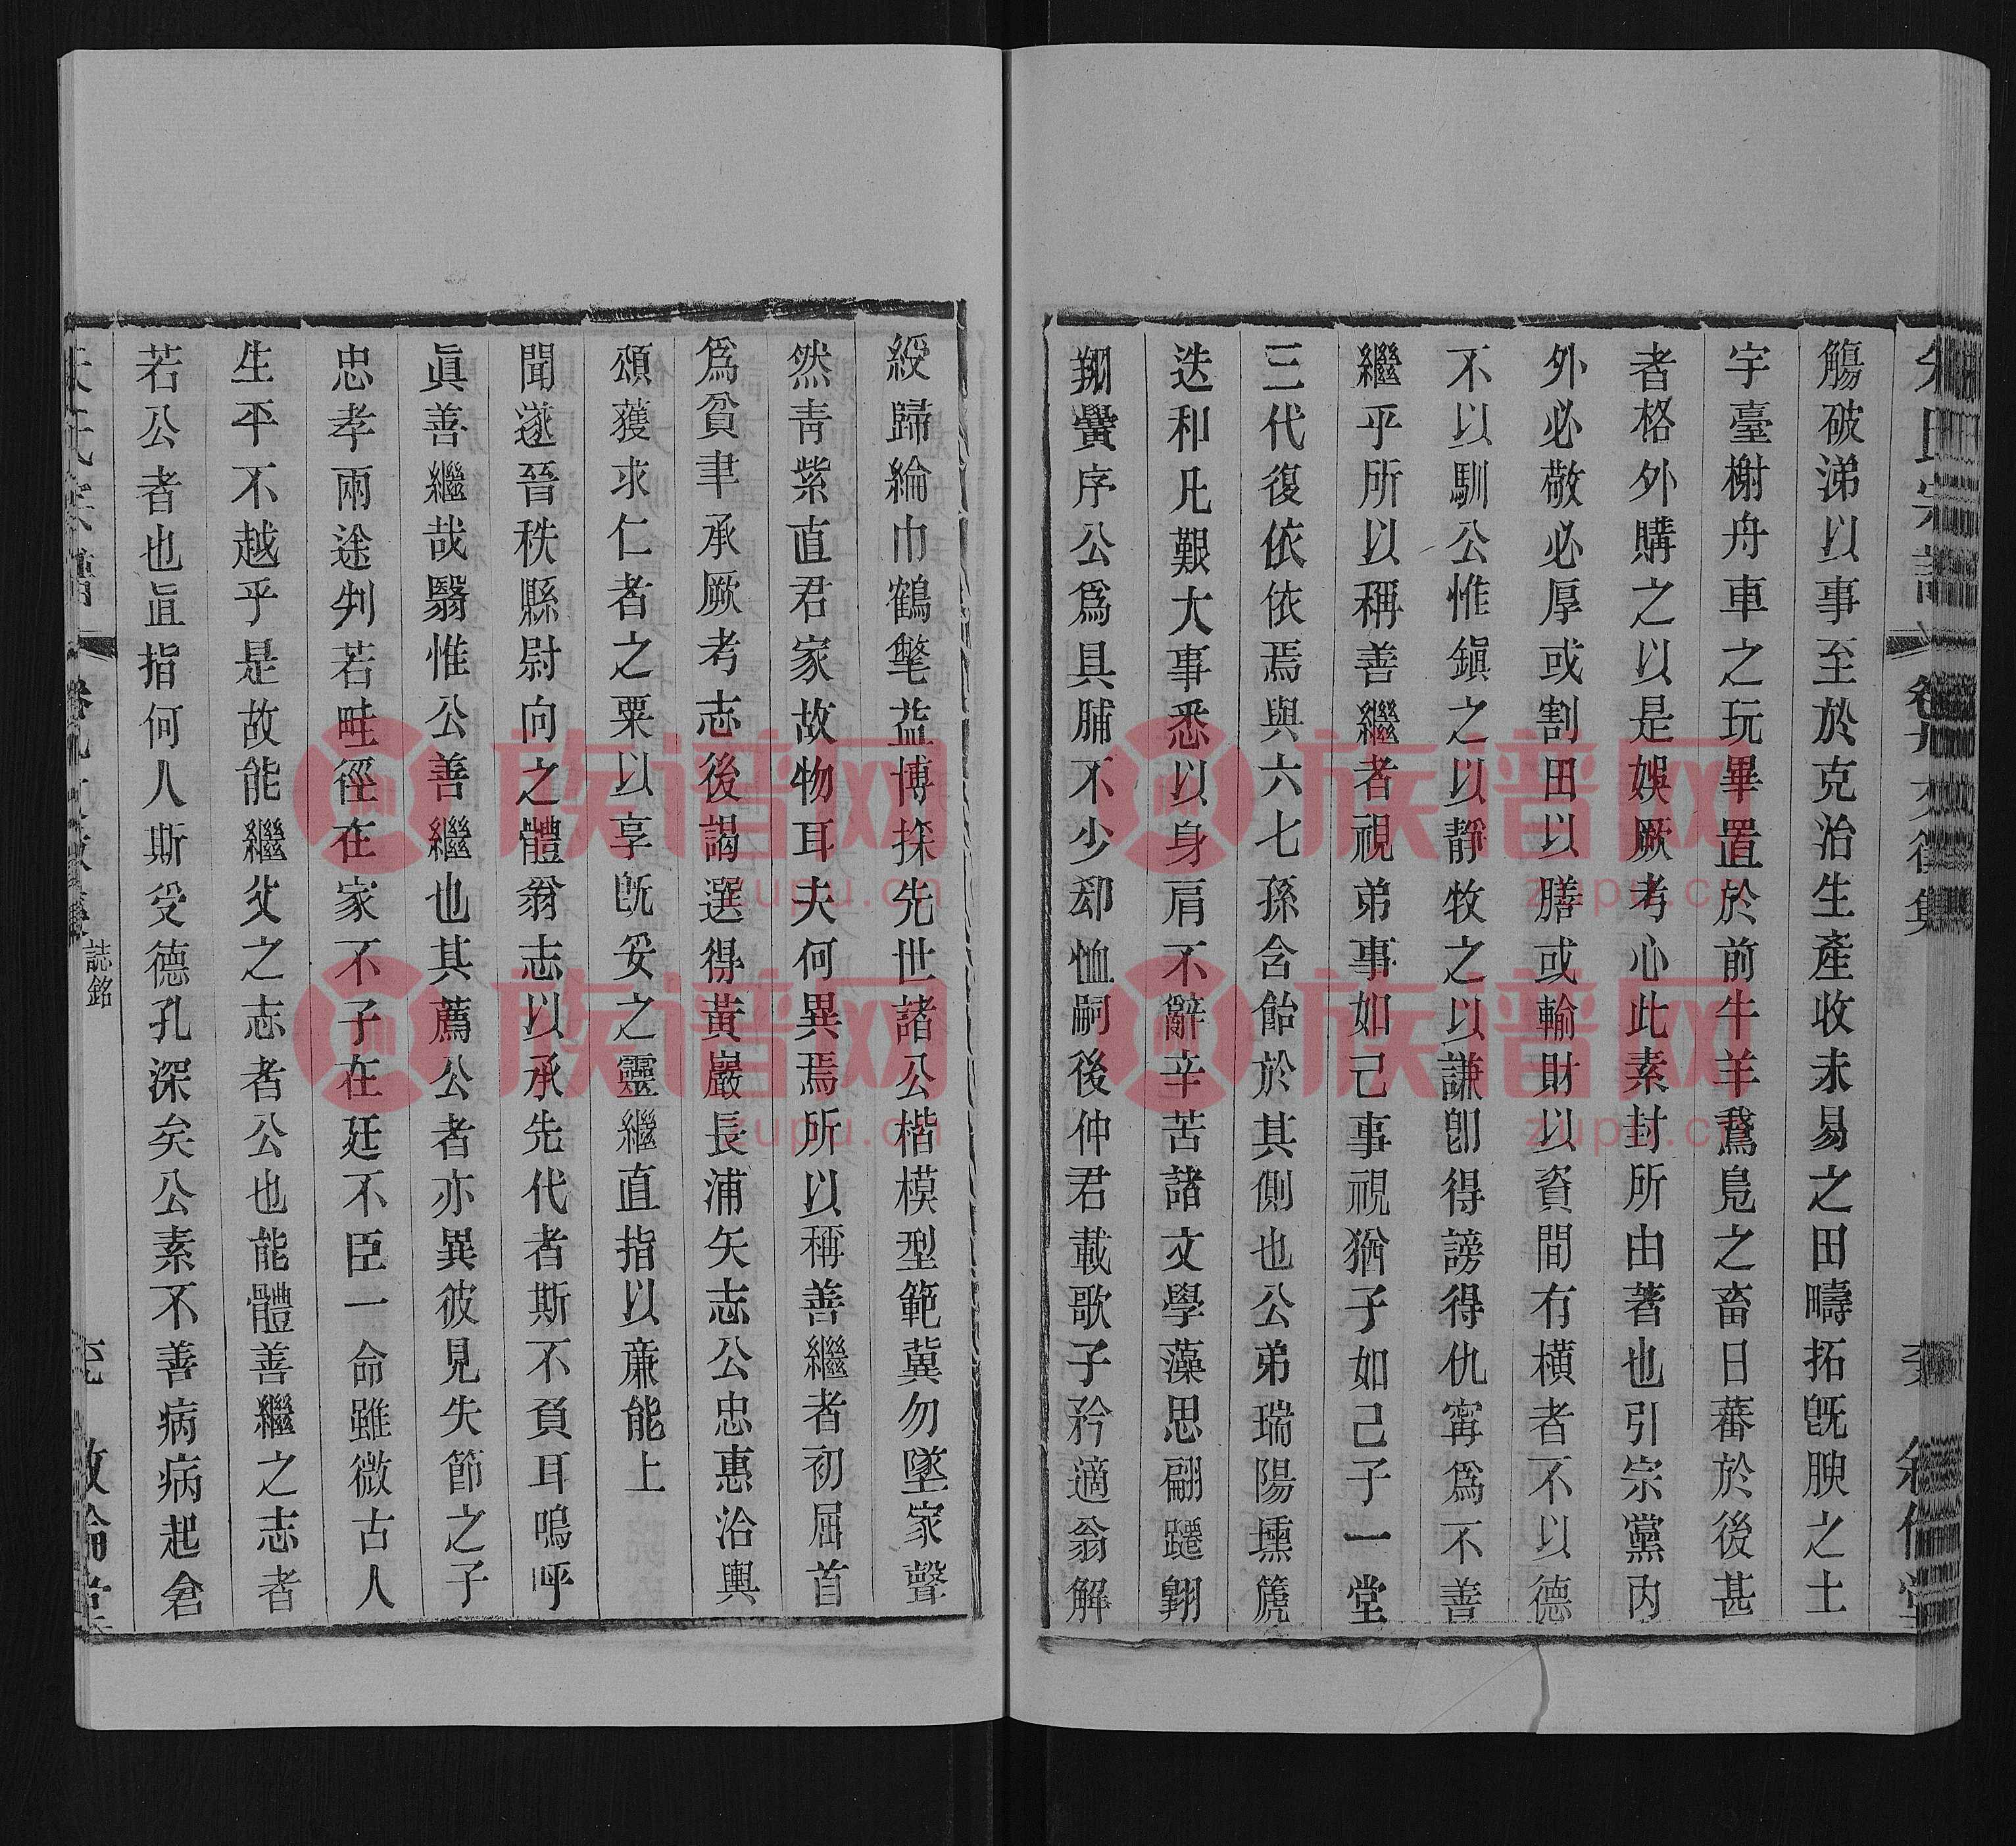 觴破涕以事至於克治生產收未易之田疇拓旣腴之土
宇臺榭舟車之玩畢置於前牛羊鵞鳧之畜日蕃於後甚
者格外購之以是娛厥考心此素封所由著也引宗黨內
外必敬必厚或割田以膳或輸財以資間有橫者不以德
不以馴公惟鎮之以靜牧之以謙卽得謗得仇寗爲不善
繼乎所以稱善繼者視弟事如己事視猶子如己子一堂
三代復依依焉與六七孫含飴於其側也公弟瑞陽壎篪
迭和凡艱大事悉以身肩不辭辛苦諸文學藻思翩躚翺
翔黌序公爲具脯不少卻恤嗣後仲君載歌子矜適翁解
綬歸綸巾鶴氅益博採先世諸公楷模型範冀勿墜家聲
然青紫直君家故物耳夫何異焉所以稱善繼者初屈首
爲貧聿承厥考志後謁選得黃巖長浦矢志公忠惠洽輿
頌獲求仁者之粟以享旣妥之靈繼直指以亷能上
聞遂晉秩縣尉向之體翁志以承先代者斯不負耳嗚呼
眞善繼哉翳惟公善繼也其薦公者亦異彼見失節之子
忠孝兩途判若畦徑在家不子在廷不臣一命雖微古人
生平不越乎是故能繼父之志者公也能體善繼之志者
若公者也直指何人斯受德孔深矣公素不善病病起倉
誌銘